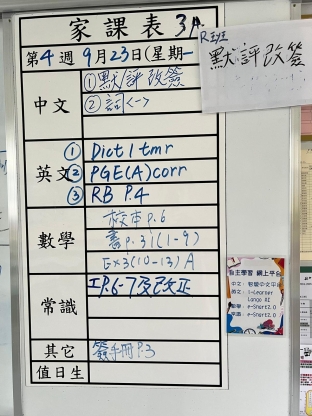 家課表 3A
第4週 9月23日(星期一
R班
默評改簽
中文
①默/評改簽
②詞<一>
英文
① Dict 1 tmr
② PGE(A)corr
③ RB P.4
數學
校本P.6
書P.31(1-9)
Ex3(10-13)A
常識
工P.6-7及改正
其它
簽手冊P.3
值日生
自主學習 網上平台
中文:
英文: i-Learner
Lango AI
數學: e-Smart2.0
常識: e-Smart2.0